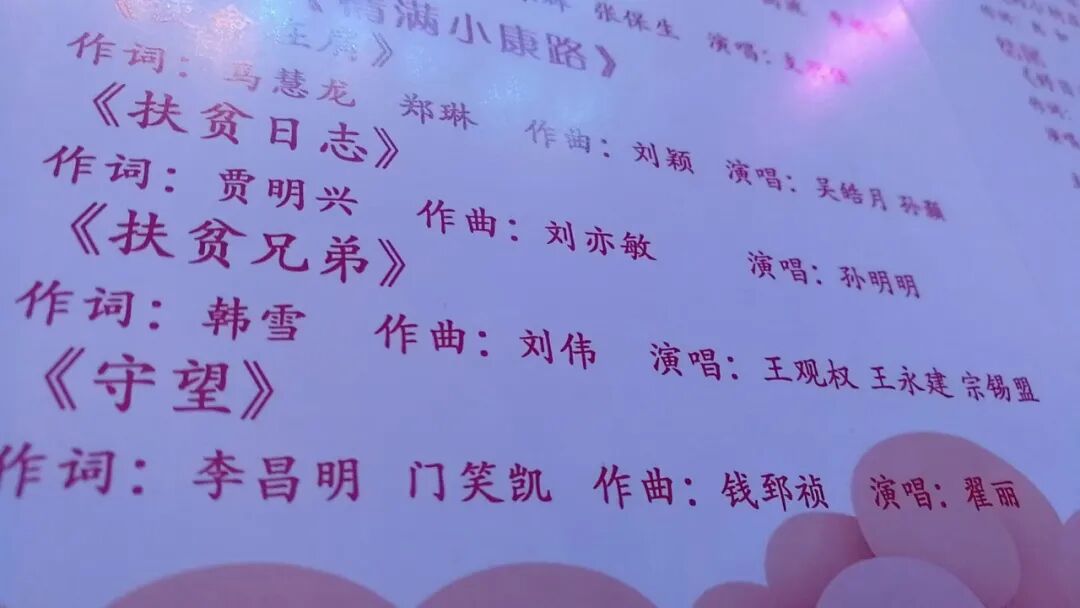 张保生 演唱：
满小康路》
作词：马慧龙 郑琳 作曲：刘颖 演唱：吴皓月 孙颢
《扶贫日志》
作词：贾明兴 作曲：刘亦敏 演唱：孙明明
《扶贫兄弟》
作词：韩雪 作曲：刘伟 演唱：王观权 王永建 宗锡盟
《守望》
作词：李昌明 门笑凯 作曲：钱郅祯 演唱：翟丽